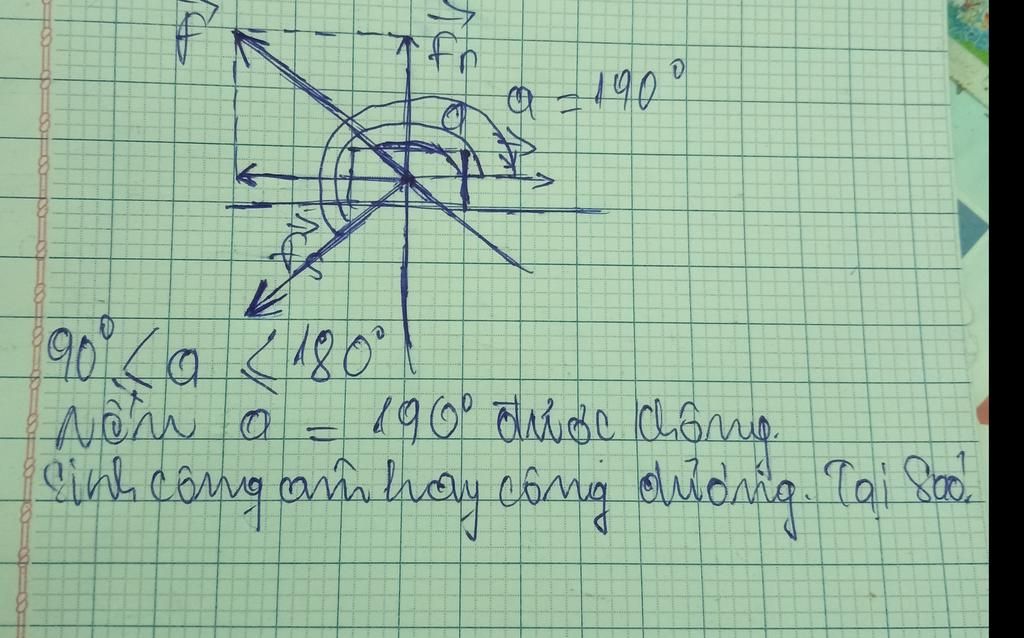 F Fn
a = 190°
a
Fs
90° < a < 180°
Nếm a = 190° được chông.
Sinh công âm hay công dương. Tại Sao?